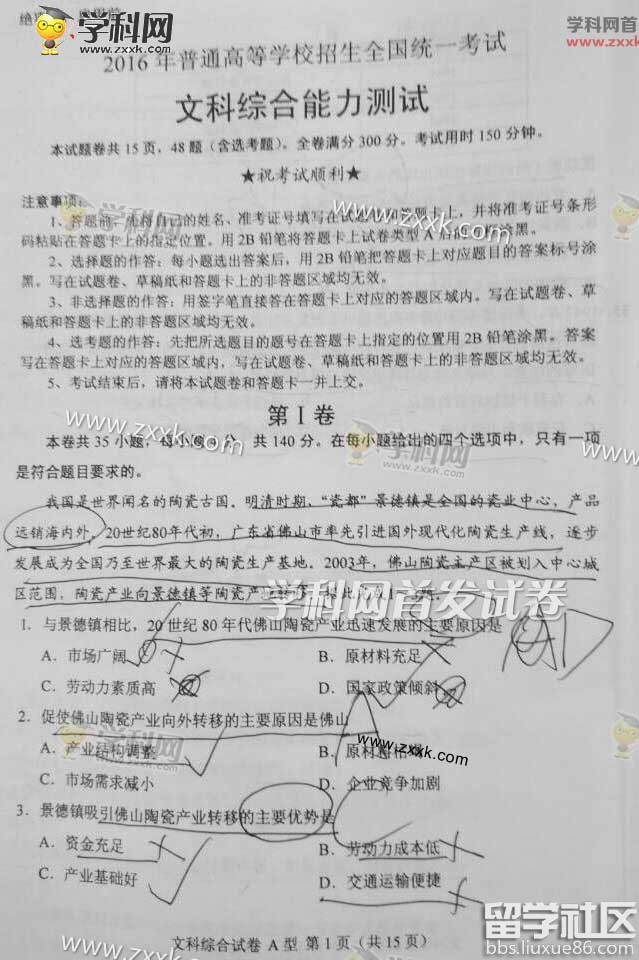 学科网
www.zxxk.com
学科网
www.zxxk.com
绝
2016年普通高等学校招生全国统一考试
文科综合能力测试
本试题卷共15页,48题(含选考题)。全卷满分300分。考试用时150分钟。
★祝考试顺利★
注意事项:
1、答题前,先将自己的姓名、准考证号填写在试题卷和答题卡上,并将准考证号条形
码粘贴在答题卡上的指定位置。用2B铅笔将答题卡上试卷类型A后的方框涂黑。
2、选择题的作答:每小题选出答案后,用2B铅笔把答题卡上对应题目的答案标号涂
黑。写在试题卷、草稿纸和答题卡上的非答题区域均无效。
3、非选择题的作答:用签字笔直接答在答题卡上对应的答题区域内。写在试题卷、草
稿纸和答题卡上的非答题区域均无效。
4、选考题的作答:先把所选题目的题号在答题卡上指定的位置用2B铅笔涂黑。答案
写在答题卡上对应的答题区域内,写在试题卷、草稿纸和答题卡上的非答题区域均无效。
5、考试结束后,请将本试题卷和答题卡一并上交。
第Ⅰ卷
本卷共35小题,每小题 分,共140分。在每小题给出的四个选项中,只有一项
是符合题目要求的。
我国是世界闻名的陶瓷古国。明清时期,“瓷都”景德镇是全国的瓷业中心,产品
远销海内外。20世纪80年代初,广东省佛山市率先引进国外现代化陶瓷生产线,逐步
发展成为全国乃至世界最大的陶瓷生产基地。2003年,佛山陶瓷主产区被划入中心城
区范围,陶瓷产业向景德镇等陶瓷产地转移。据此完成1~3题。
学科网首发试卷
1.与景德镇相比,20世纪80年代佛山陶瓷产业迅速发展的主要原因是
A.市场广阔 B.原材料充足
C.劳动力素质高 D.国家政策倾斜
2.促使佛山陶瓷产业向外转移的主要原因是佛山
A.产业结构调整 B.原材料枯
C.市场需求减小 D.企业竞争加剧
3.景德镇吸引佛山陶瓷产业转移的主要优势是
A.资金充足 B.劳动力成本低
C.产业基础好 D.交通运输便捷
文科综合试卷 A型 第1页(共15页)
留学社区
bbs.liuxue86.com